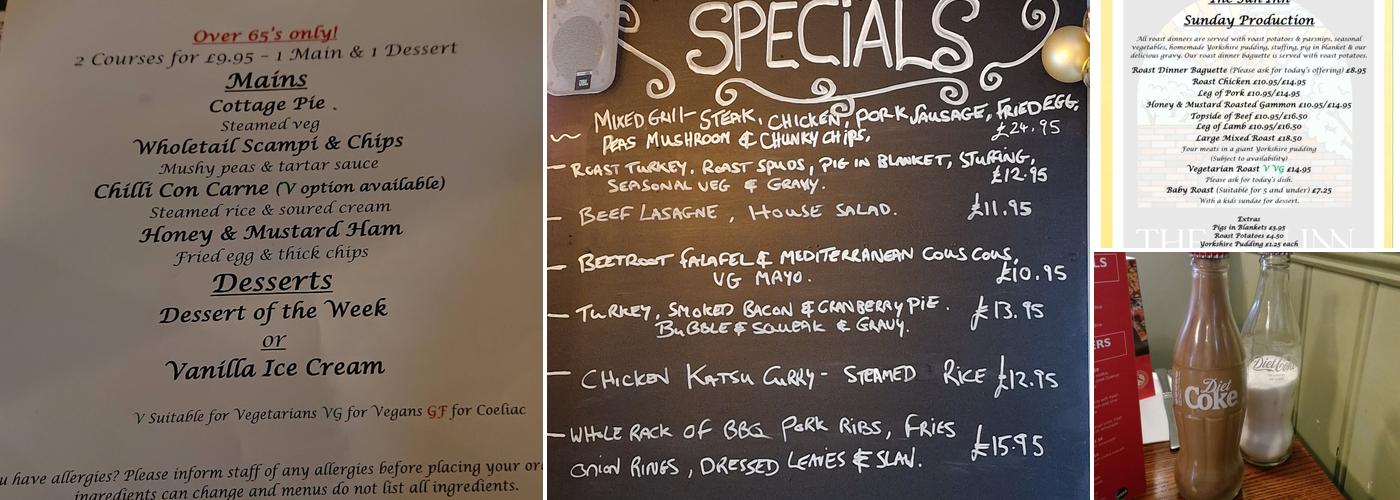 Over 65's only!
2 Courses for £9.95 - 1 Main & 1 Dessert
Mains
Cottage Pie .
Steamed veg
Wholetail Scampi & Chips
Mushy peas & tartar sauce
Chilli Con Carne (V option available)
Steamed rice & soured cream
Honey & Mustard Ham
Fried egg & thick chips
Desserts
Dessert of the Week
or
Vanilla Ice Cream
V Suitable for Vegetarians VG for Vegans GF for Coeliac
u have allergies? Please inform staff of any allergies before placing your or
ingredients can change and menus do not list all ingredients.
SPECIALS
MIXED GRILL - STEAK, CHICKEN, PORK SAUSAGE, FRIED EGG,
PEAS MUSHROOM & CHUNKY CHIPS, £24.95
ROAST TURKEY, ROAST SPUDS, PIG IN BLANKET, STUFFING,
SEASONAL VEG & GRAVY. £12.95
BEEF LASAGNE, HOUSE SALAD. £11.95
BEETROOT FALAFEL & MEDITERRANEAN COUS COUS,
VG MAYO. £10.95
TURKEY, SMOKED BACON & CRANBERRY PIE. £13.95
BUBBLE & SQUEAK & GRAVY.
CHICKEN KATSU CURRY - STEAMED RICE £12.95
WHOLE RACK OF BBQ PORK RIBS, FRIES
ONION RINGS, DRESSED LEAVES & SLAW. £15.95
JBL
The Sun Inn
Sunday Production
All roast dinners are served with roast potatoes & parsnips, seasonal
vegetables, homemade Yorkshire pudding, stuffing, pig in blanket & our
delicious gravy. Our roast dinner baguette is served with roast potatoes.
Roast Dinner Baguette (Please ask for today's offering) £8.95
Roast Chicken £10.95/£14.95
Leg of Pork £10.95/£14.95
Honey & Mustard Roasted Gammon £10.95/£14.95
Topside of Beef £10.95/£16.50
Leg of Lamb £10.95/£16.50
Large Mixed Roast £18.50
Four meats in a giant Yorkshire pudding
(Subject to availability)
Vegetarian Roast V VG £14.95
Please ask for today's dish.
Baby Roast (Suitable for 5 and under) £7.25
With a kids sundae for dessert.
Extras
Pigs in Blankets £3.95
Roast Potatoes £4.50
Yorkshire Pudding £1.25 each
THE INN
LS
ERS
Diet
Coke
Diet Coke